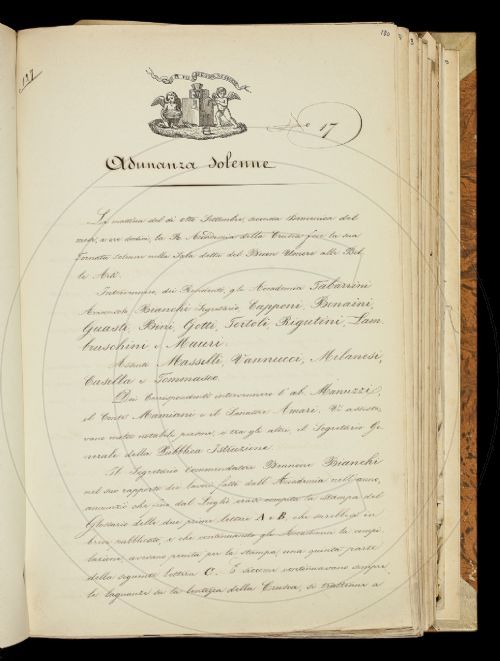 180
137
N° 17
Adunanza solenne
La mattina del dì otto Settembre, seconda Domenica del
mese, a ore dodici, la R. Accademia della Crusca fece la sua
Tornata solenne nella Sala detta del Buon Umore alle Bel-
le Arti.
Intervennero, dei Residenti, gli Accademici Tabarrini
Arciconsolo Bianchi Segretario Capponi, Bonaini,
Guasti, Bini, Gotti, Tortoli, Rigutini, Lam-
bruschini e Mauri.
Assenti Masselli, Vannucci, Milanesi,
Casella e Tommaseo.
Dei Corrispondenti intervennero l'ab. Manuzzi,
il Conte Mamiani e il Senatore Amari. Vi assiste-
vano molte notabili persone, e tra gli altri, il Segretario Ge-
nerale della Pubblica Istruzione.
Il Segretario Commendatore Brunone Bianchi
nel suo rapporto dei lavori fatti dall'Accademia nell'anno,
annunziò che sino dal Luglio erasi compita la stampa del
Glossario delle due prime lettere A e B, che sarebbe in
breve pubblicato, e che continuando gli Accademici la compi-
lazione, avevano pronta per la stampa una quinta parte
della seguente lettera C. E siccome continuavano sempre
le lagnanze su la lentezza della Crusca, si trattenne a